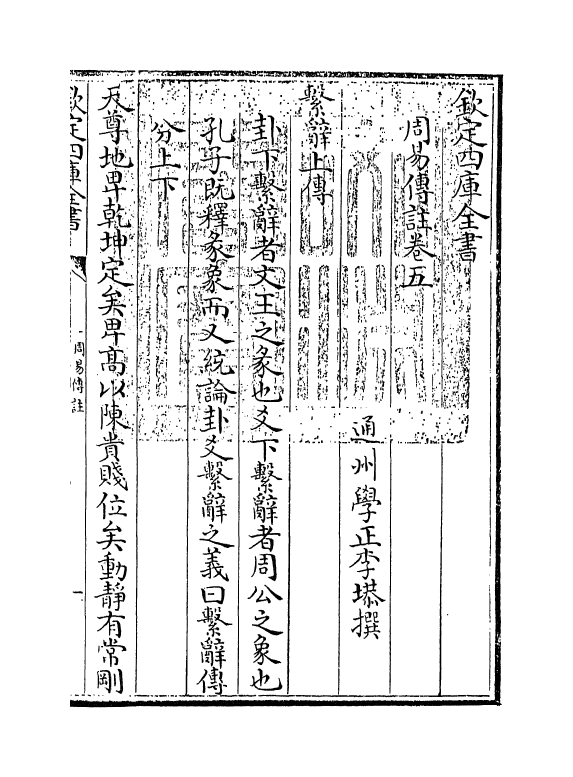 欽定四庫全書
周易傳註卷五
通州學正李塨撰
繫辭上傳
卦下繫辭者文王之彖也爻下繫辭者周公之象也
孔子既釋彖象而又統論卦爻繫辭之義曰繫辭傳
分上下
天尊地卑乾坤定矣卑髙以陳貴賤位矣動靜有常剛
欽定四庫全書
周易傳註
一